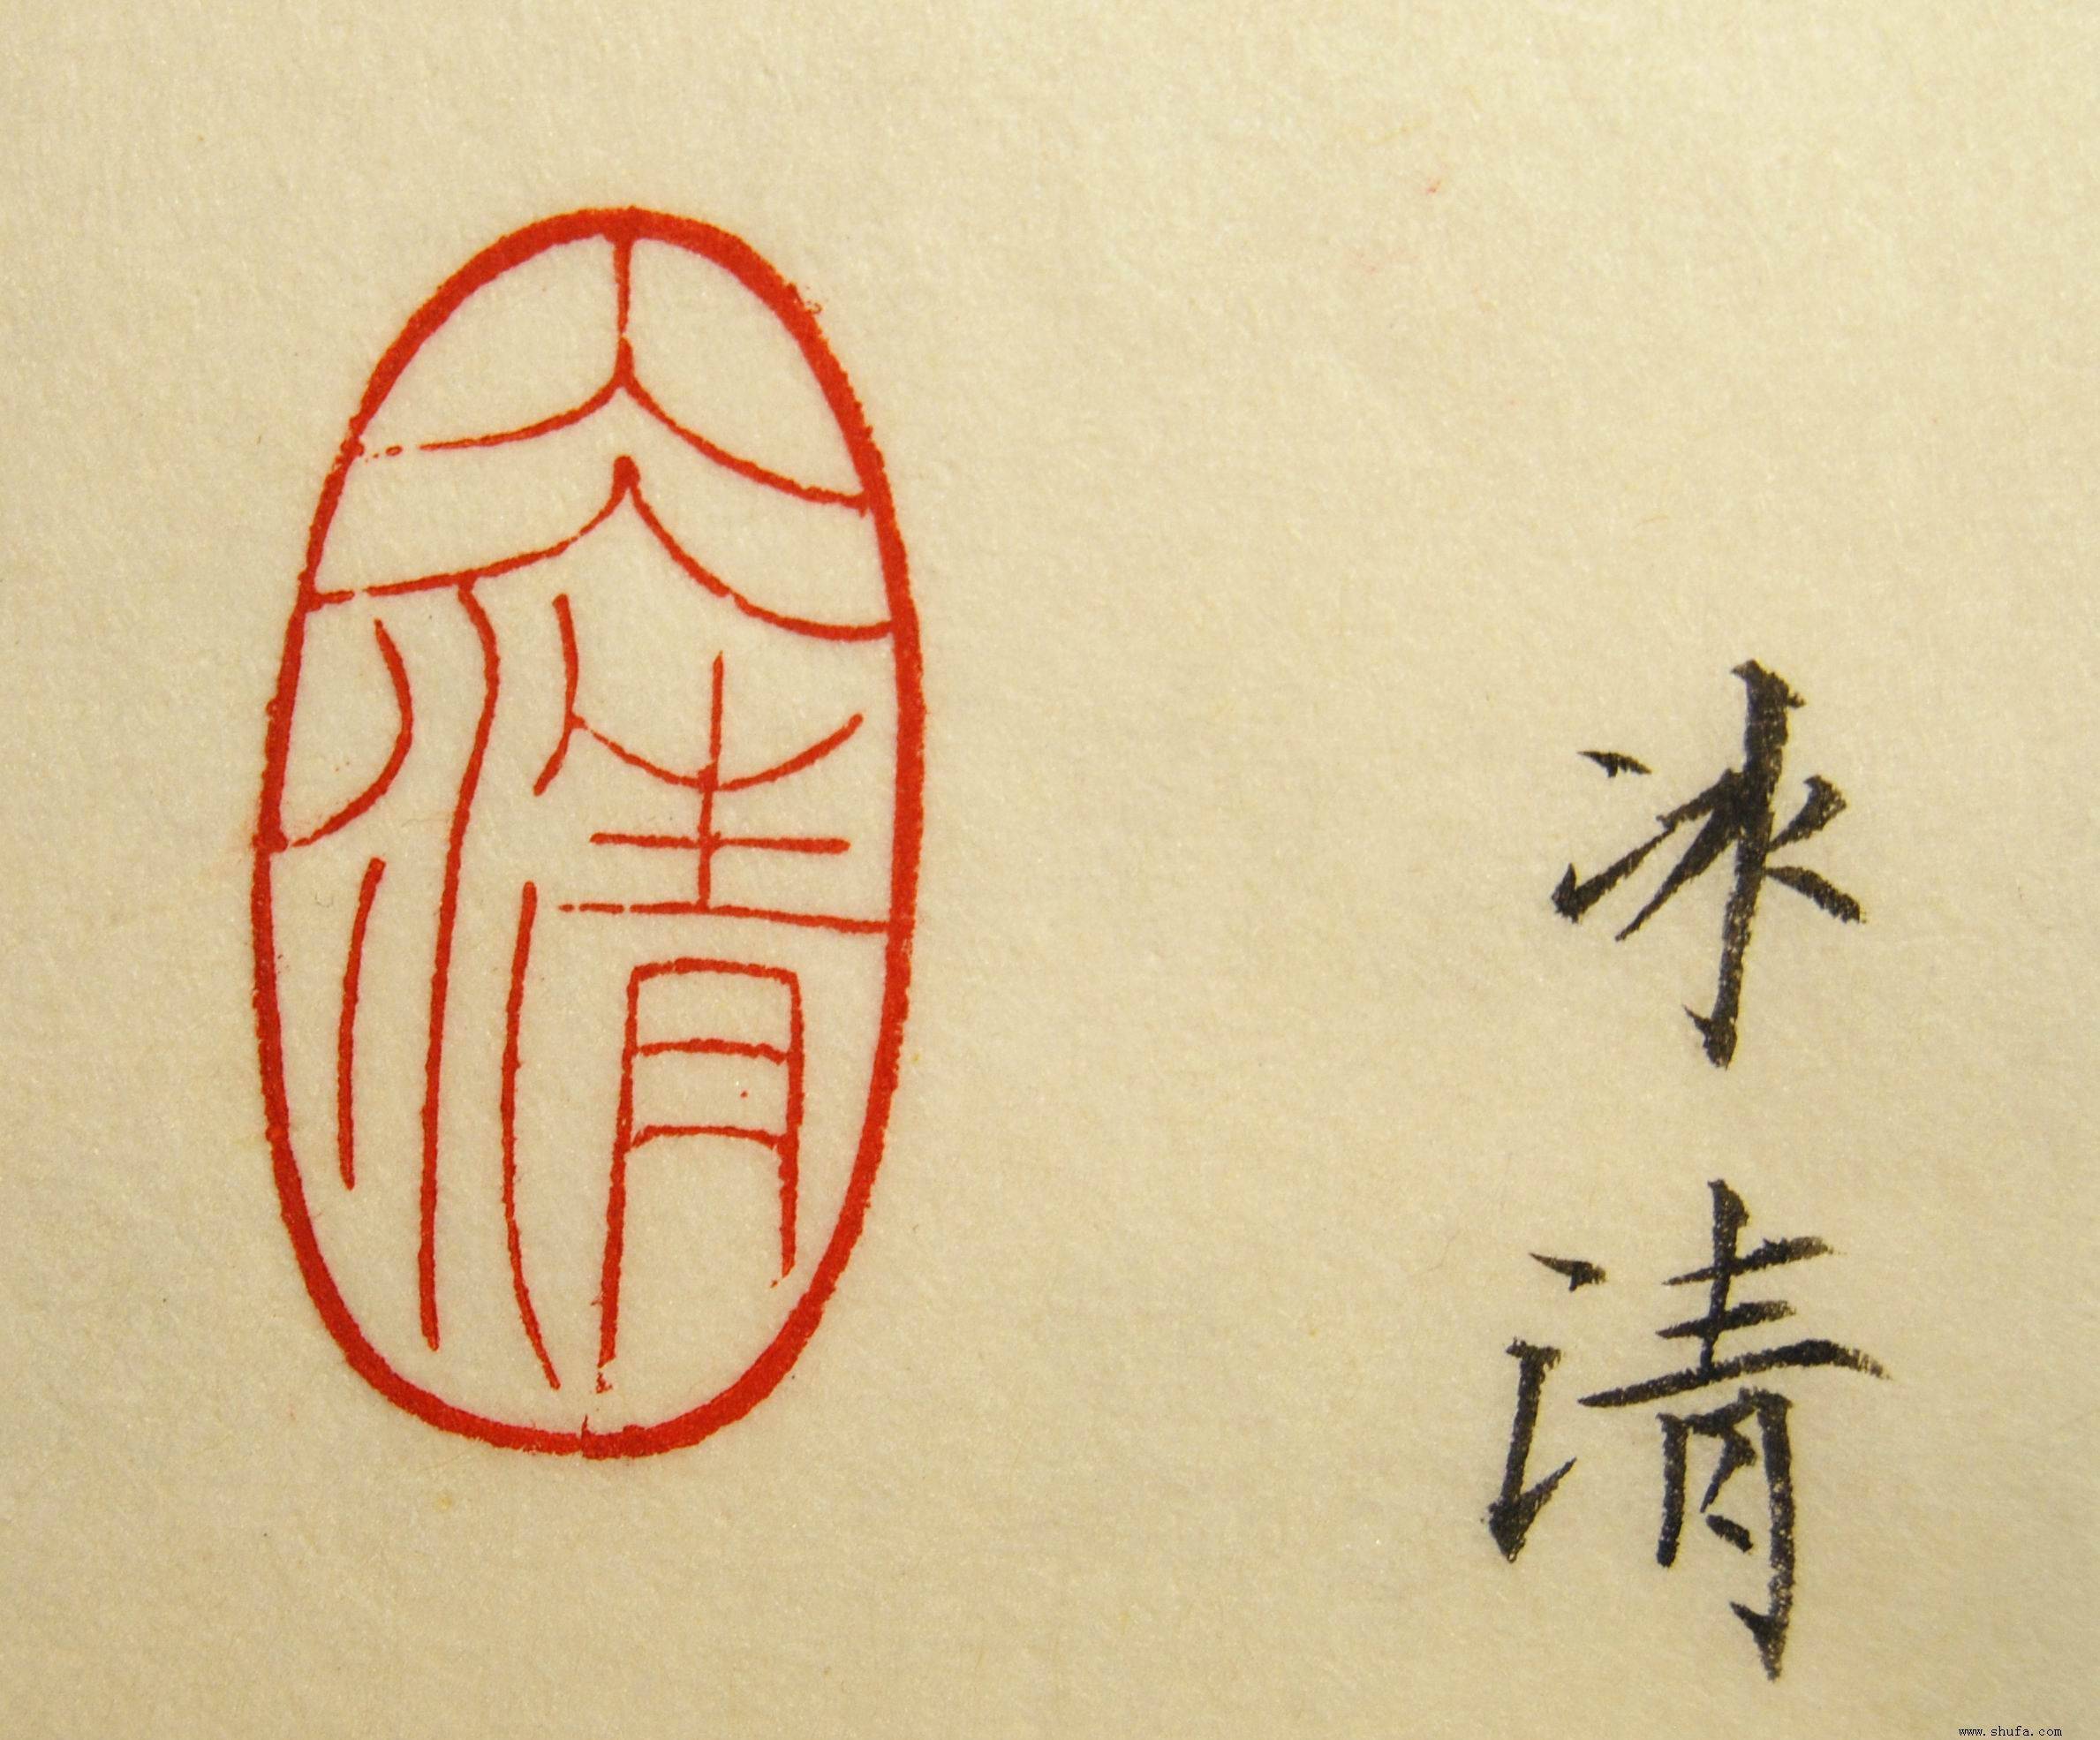 冰清
冰
清
www.shufa.com